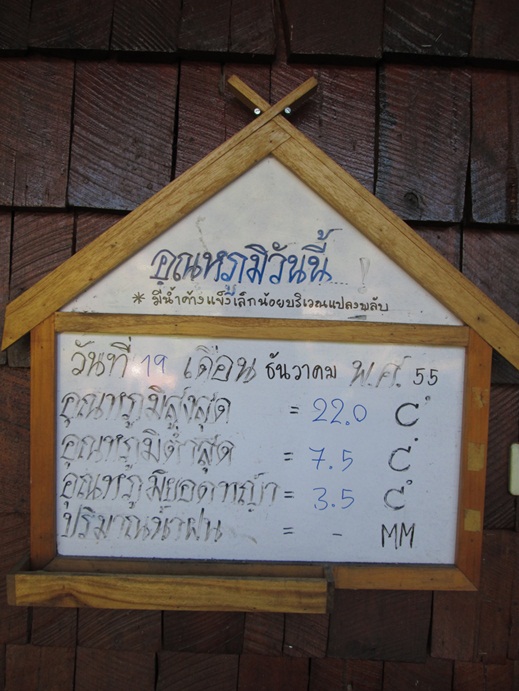 อุณหภูมิวันนี้
* มีน้ำค้างแข็งเล็กน้อยบริเวณแปลงพลับ
วันที่ 19 เดือน ธันวาคม พ.ศ. 55
อุณหภูมิสูงสุด = 22.0 C°
อุณหภูมิต่ำสุด = 7.5 C°
อุณหภูมิยอดหญ้า = 3.5 C°
ปริมาณน้ำฝน = - MM